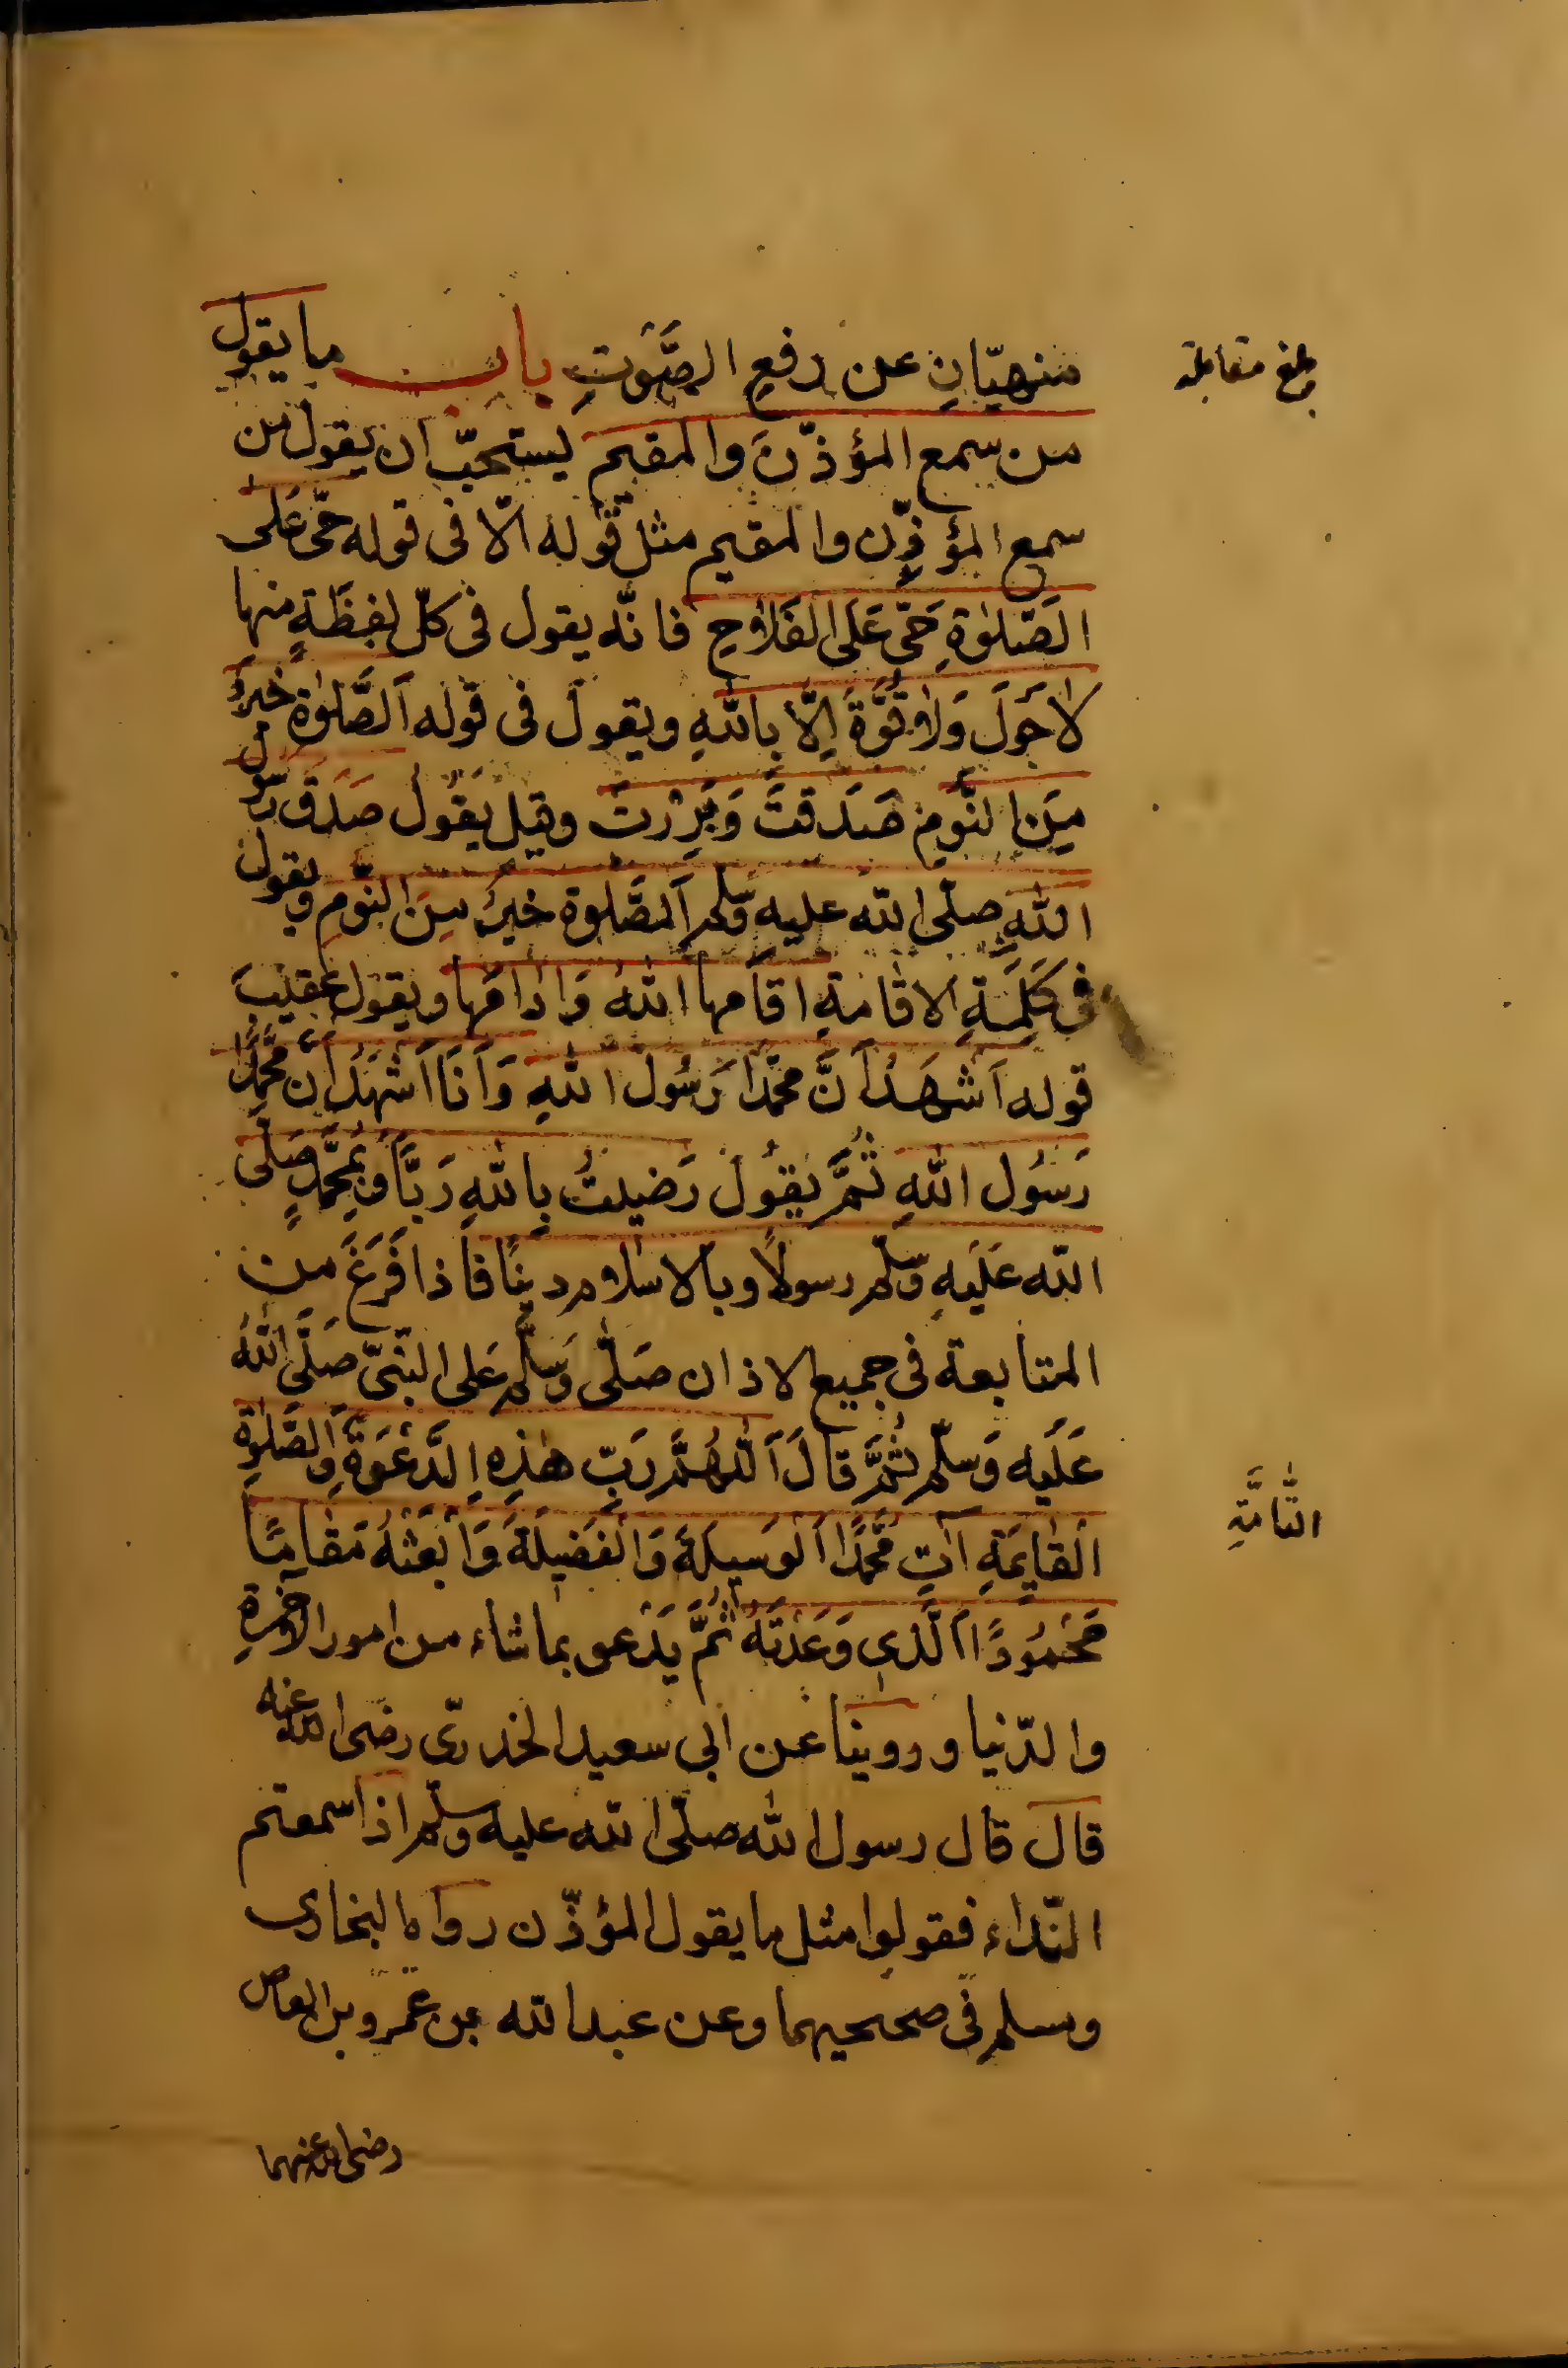 منهيّان عن رفع الصَّوتِ باب ما يقول
بلغ مقابلة
من سمع المؤذّن والمقيم يستحبّ ان يقول من
سمع المؤذّن والمقيم مثل قوله الّا فى قوله حَىَّ عَلَى
الصَّلٰوةِ حَىَّ عَلَى الفَلاَحِ فانّه يقول فى كلّ لفظَةٍ منها
لاَحَولَ وَلاَ قُوَّةَ اِلَّا بِاللهِ ويقول فى قوله اَلصَّلٰوة خَيرٌ
مِنَ النَّومِ صَدَقتَ وَبَرِرْتَ وقيل يقول صَدَقَ رسول
اللهِ صلّى الله عليه وسلّم اَلصَّلٰوة خيرٌ مِنَ النَّوم ويقول
فى كَلِمَةِ الاقامةِ اقامها اللهُ وَاَدَامَها ويقول عقيبَ
قوله اَشهَدُ اَنَّ محمّدًا رَسُول اللهِ وَاَنَا اَشهَدُ اَنَّ محمّدًا
رَسُول اللهِ ثُمَّ يَقُولُ رَضيتُ بِاللهِ رَبًّا وَبِمُحَمَّدٍ صَلّى
الله عَلَيهِ وسلّم رسولاً وبالاسلام دينًا فاذا فَرَغَ من
المتابعة فى جميع الاذان صَلّى وَسلّم عَلى النّبىّ صَلَّى اللهُ
عَلَيه وَسلّم ثُمَّ قالَ اَللّهُمَّ رَبّ هٰذِهِ الدَّعْوَةِ وَالصَّلٰوةِ
التَّامَّةِ
القَايِمَةِ اٰتِ مُحَمَّدًا الوَسيلَةَ وَالفَضيلَةَ وَابْعَثْهُ مَقَامًا
مَحْمُودًا الَّذى وَعَدْتَهُ ثُمَّ يَدْعو بما شاء من امور الآخرةِ
والدّنيا وروينا عن ابى سعيد الخدرىّ رضى الله عنه
قال قال رسول الله صلّى الله عليه وسلّم اذا سمعتم
النّداء فقولوا مثل ما يقول المؤذّن رواه البخارى
ومسلم فى صحيحيهما وعن عبد الله بن عمرو بن العاص
رضى الله عنهما